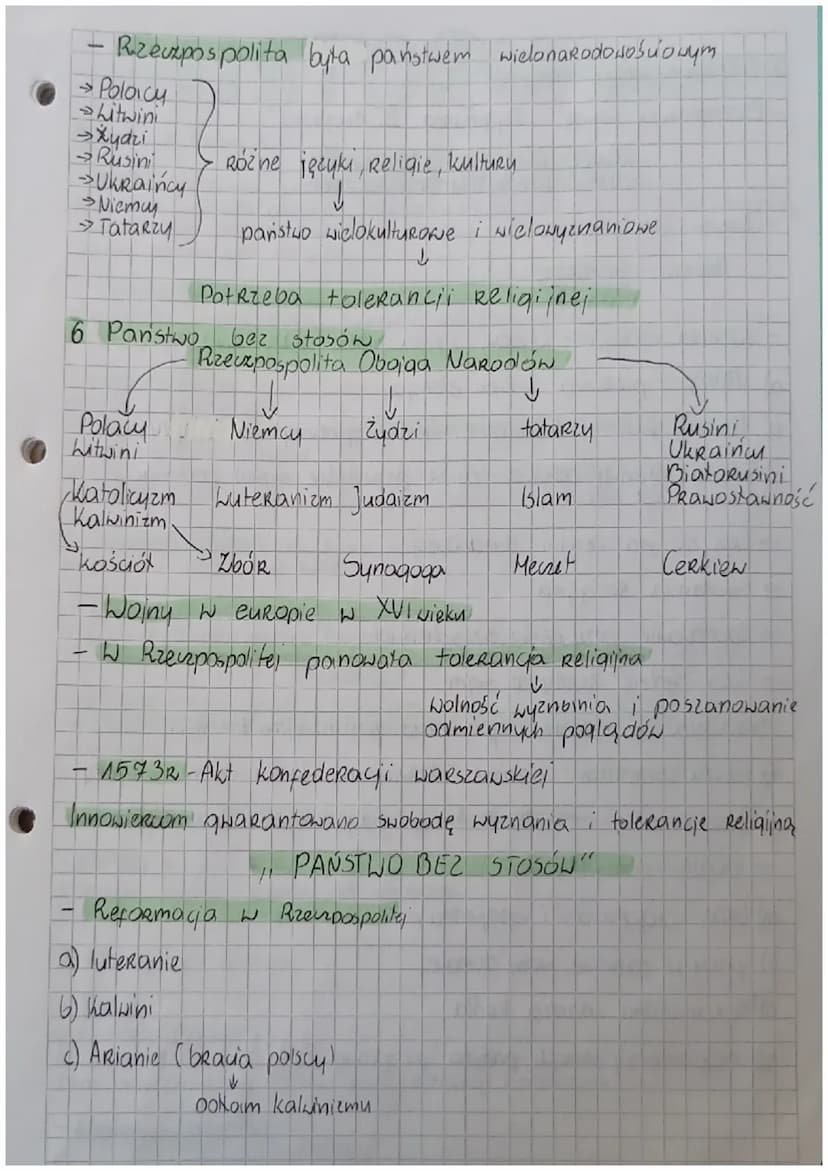 - Rzeczpospolita była państwem wielonarodowościowym
→ Polacy
→ Litwini
→ Żydzi
→ Rusini
→ Ukraińcy
→ Niemcy
→ Tatarzy
różne języki, religie, kultury
↓
państwo wielokulturowe i wielowyznaniowe
↓
Potrzeba tolerancji religijnej
6 Państwo bez stosów
Rzeczpospolita Obojga Narodów
Polacy Niemcy Żydzi tatarzy Rusini
Litwini Ukraińcy
Białorusini
Katolicyzm Luteranizm Judaizm Islam Prawosławność
Kalwinizm
Kościół Zbór Synagoga Meczet Cerkiew
- Wojny w europie w XVI wieku
- W Rzeczpospolitej panowała tolerancja religijna
↓
wolność wyznania i poszanowanie
odmiennych poglądów
- 1573r - Akt konfederacji warszawskiej
Innowiercom gwarantowano swobodę wyznania i tolerancje religijną
„PAŃSTWO BEZ STOSÓW"
- Reformacja w Rzeczpospolitej
a) luteranie
b) Kalwini
c) Arianie (bracia polscy)
↓
odłam kalwinizmu